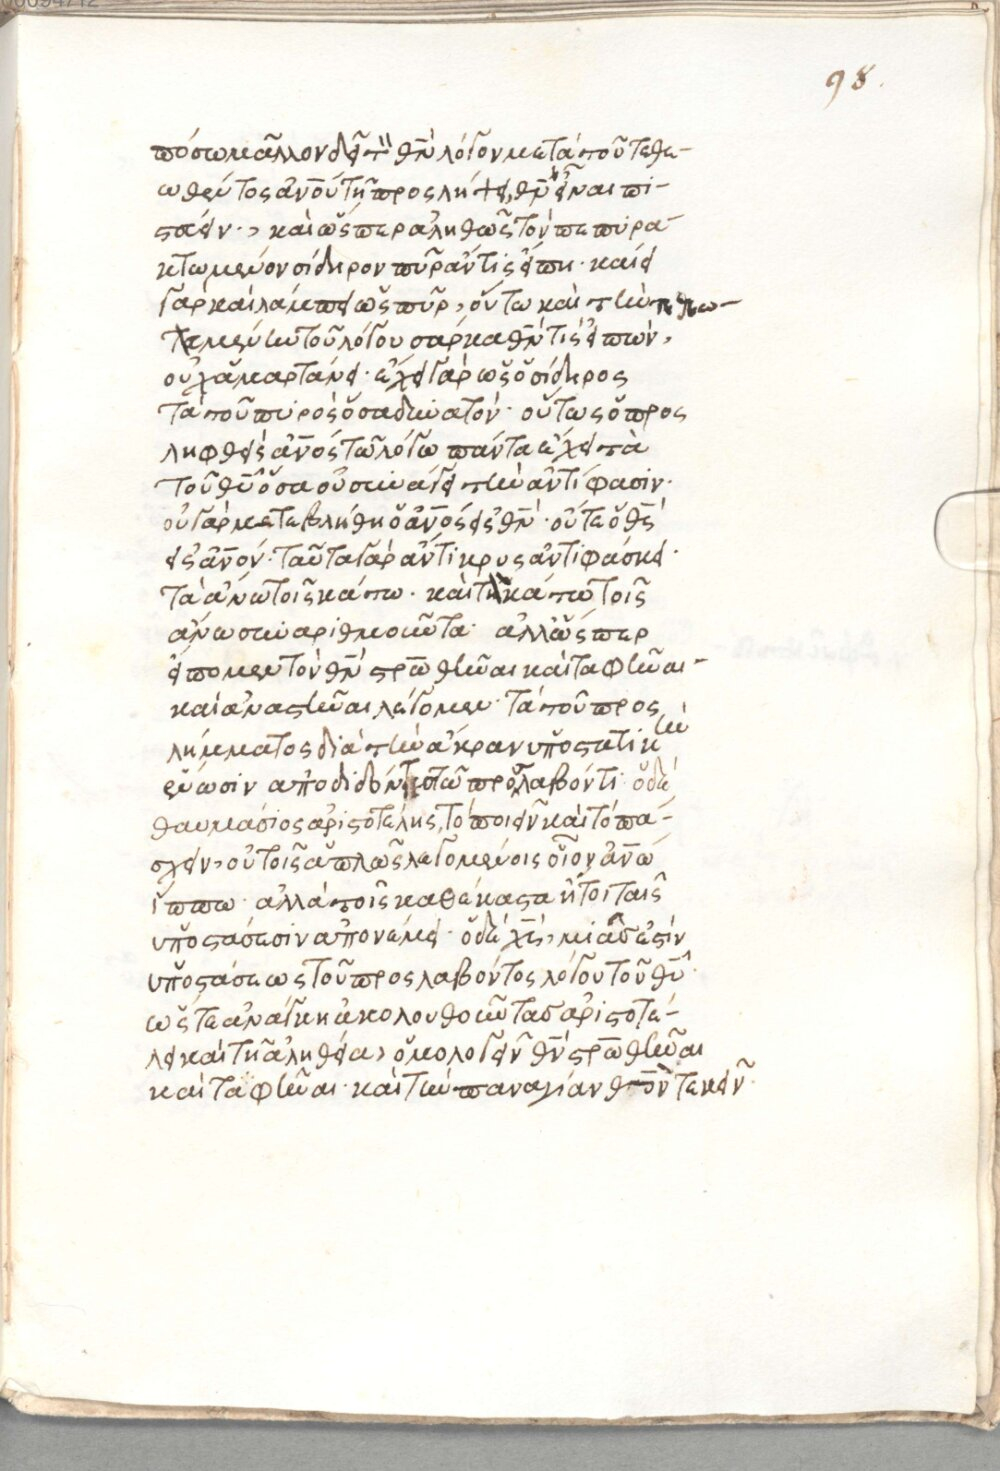 98.
πόσω μᾶλλον δεῖ τὸν θν̅ λόγον μετὰ τοῦ τεθε-
ωθέντος ἀνο̅υ τῇ προσλήψει, θν̅ εἶναι πι-
στεύειν·, καὶ ὥσπερ ἀληθῶς τὸν πεπυρα
κτωμένον σίδηρον πῦρ ἄν τις εἴπῃ· καίει
γὰρ καὶ λάμπει ὡς πῦρ, οὕτω καὶ τὴν
μένην τοῦ λόγου σάρκα θν̅ τις εἰπών,
οὐχ ἁμαρτάνει· ἔχει γὰρ ὡς ὁ σίδηρος
τὰ τοῦ πυρὸς ὅσα δυνατόν· οὕτως ὁ προς
ληφθεὶς ἀνο̅ς τῶ λόγω πάντα ἔχει τὰ
τοῦ θυ̅ ὅσα οὐ συνάγει τὴν ἀντίφασιν·
οὐ γὰρ μετεβλήθη ὁ ἀνο̅ς εἰς θν̅· οὔτε ὁ θς̅
εἰς ἀνο̅ν· ταῦτα γὰρ ἄντικρυς ἀντιφάσκει·
τὰ ἄνω τοῖς κάτω· καὶ τὰ κάτω τοῖς
ἄνω συναριθμοῦντα· ἀλλ' ὥσπερ
εἴπομεν τὸν θν̅ στρω̅θῆναι καὶ ταφῆναι-
καὶ ἀναστῆναι λέγομεν· τὰ τοῦ προς
λήμματος διὰ τὴν ἄκραν ὑποστατικὴν
ἕνωσιν ἀποδιδόντες τῶ προσλαβόντι· ὁ δὲ
θαυμάσιος ἀριστοτέλης, τὸ ποιεῖν καὶ τὸ πά-
σχειν, οὐ τοῖς ἁπλῶς λεγομένοις οἷον ἀνω̅
ἵππω· ἀλλὰ τοῖς καθέκαστα ἤτοι ταῖς
ὑποστάσεσιν ἀπονέμει· ὁ δὲ χς̅, μιᾶς ἐστιν
ὑποστάσεως τοῦ προσλαβόντος λόγου τοῦ θυ̅·
ὥστε ἀνάγκη ἀκολουθοῦντας ἀριστοτέ-
λει καὶ τῇ ἀληθεία, ὁμολογεῖν θν̅ στρω̅θῆναι
καὶ ταφῆναι· καὶ τὴν παναγίαν θν̅ τεκεῖν·